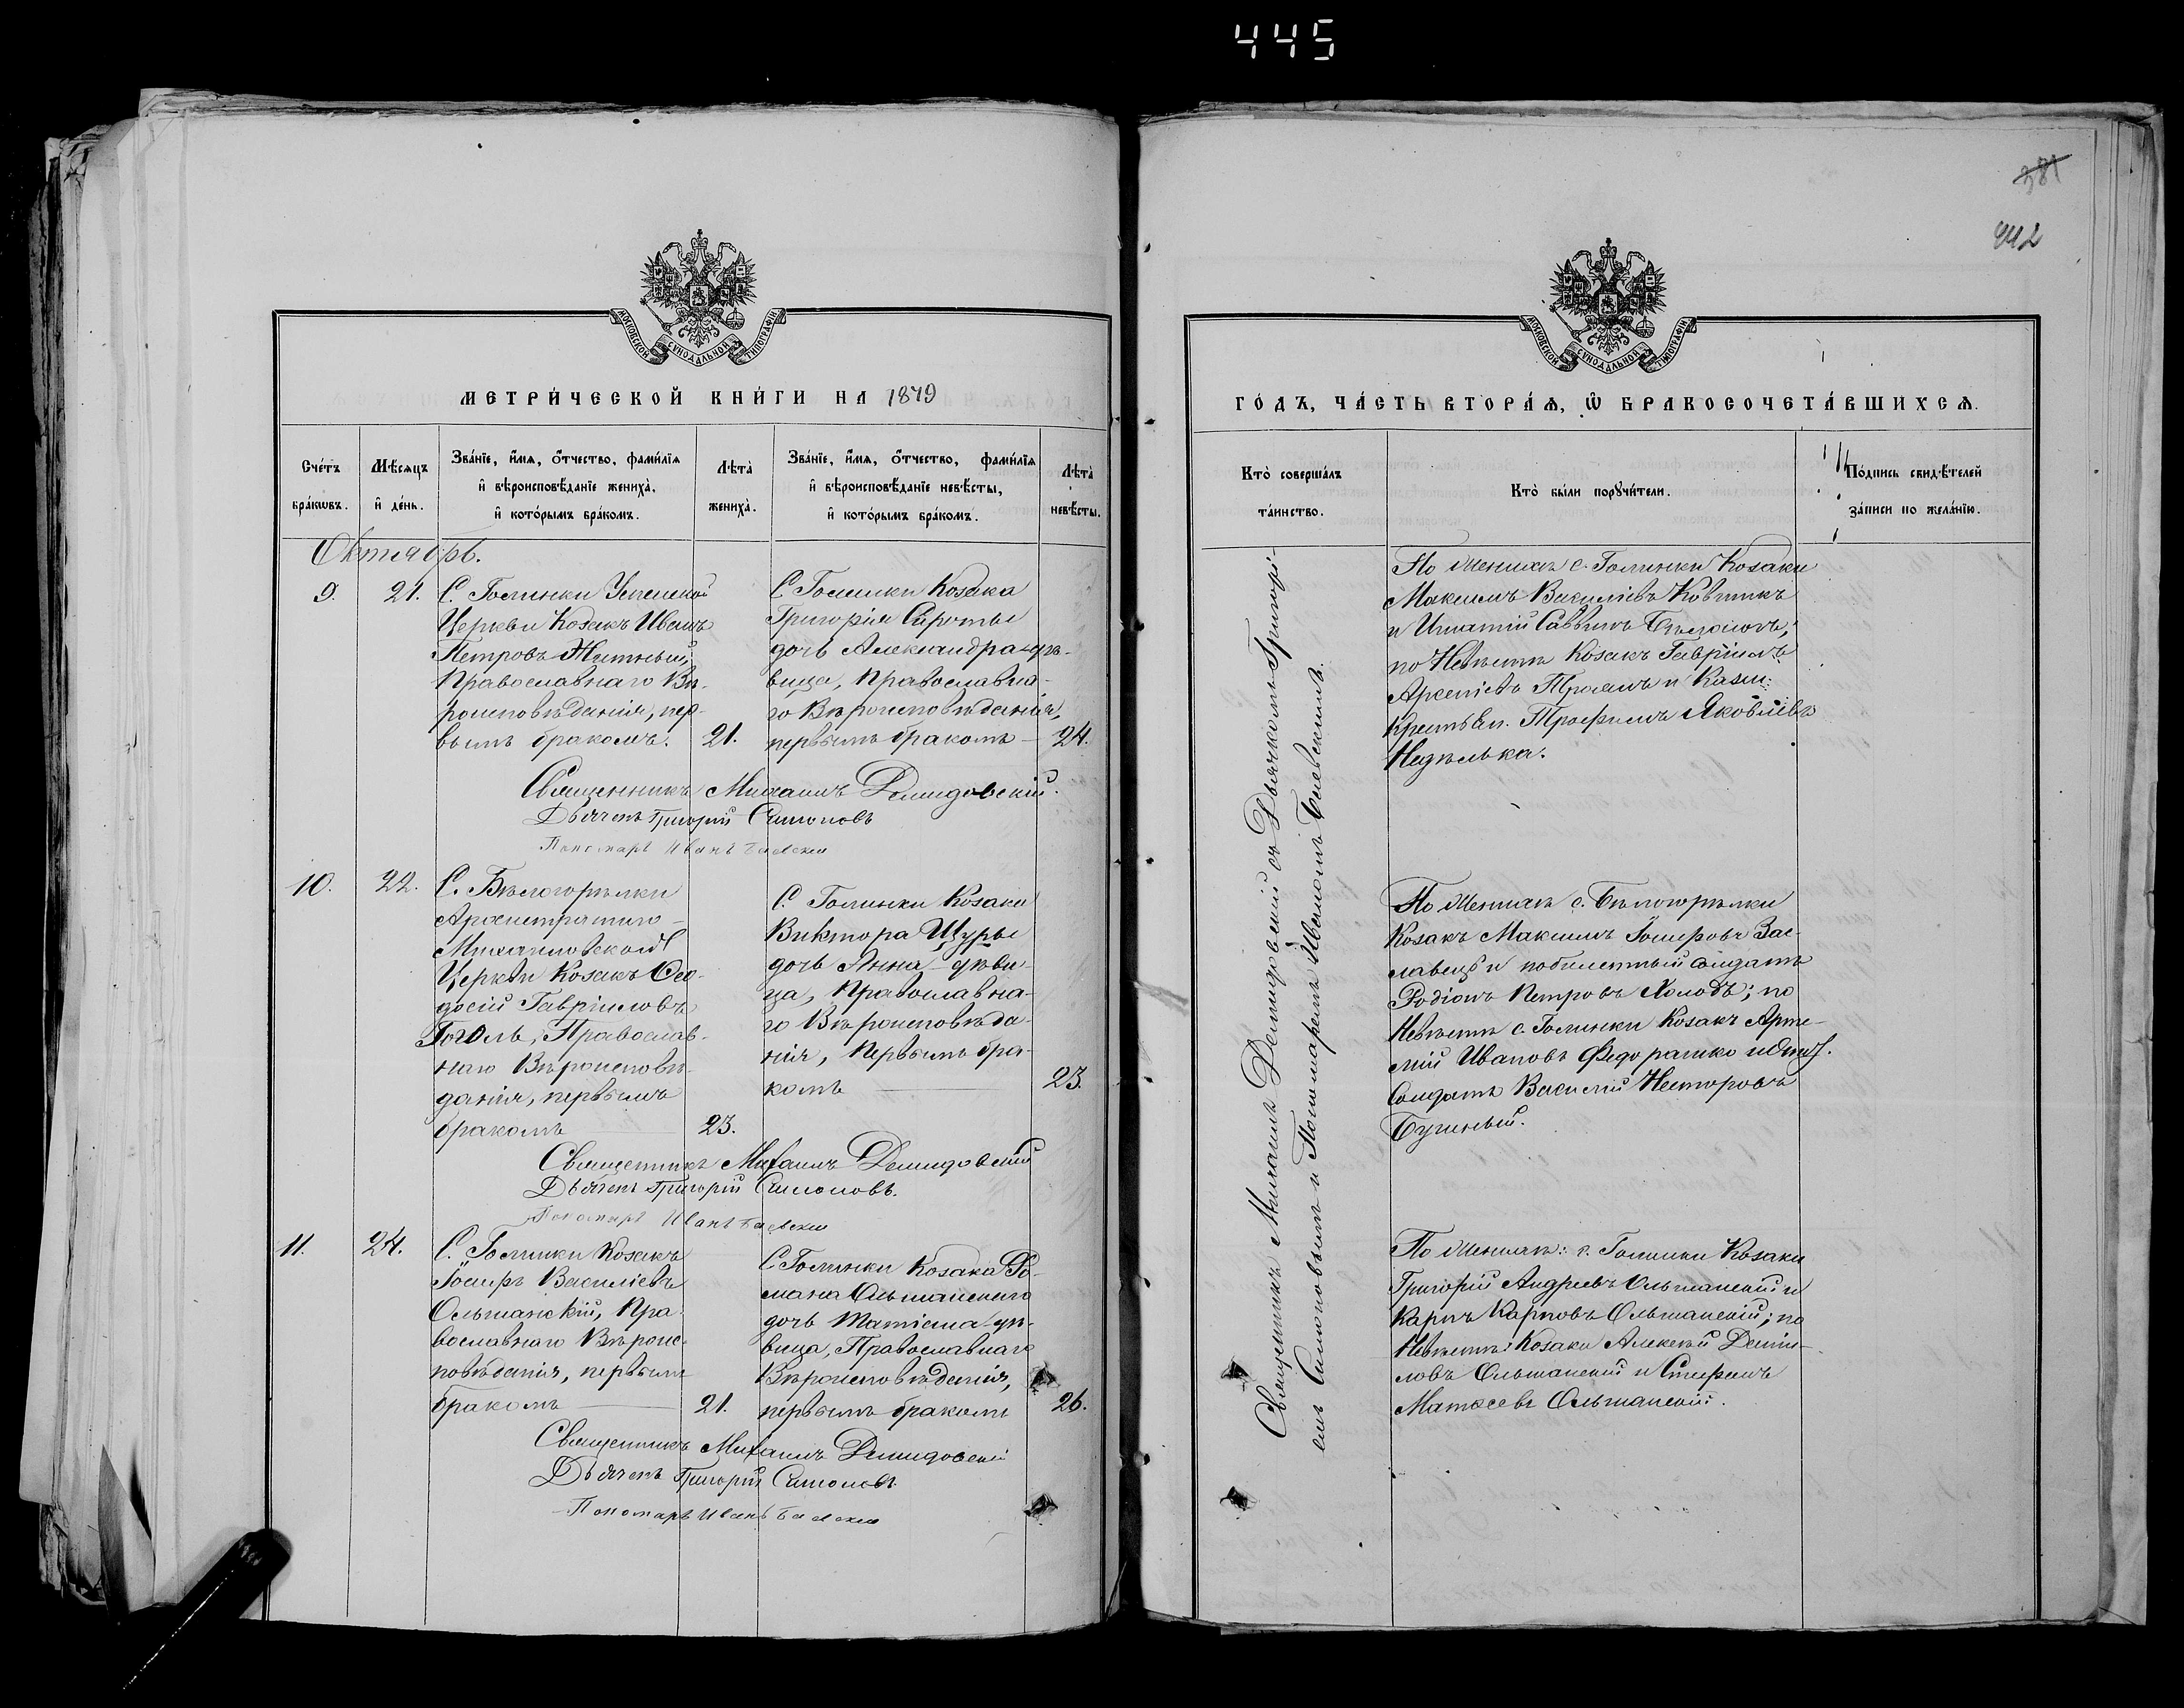 445
381
442
МОСКОВСКОЙ СѴНОДАЛЬНОЙ ТИПОГРАФІИ
МЕТРИ́ЧЕСКОЙ КНИ́ГИ НА 1879
Сче́тъ бра́кωвъ.
Мѣ́сяцъ и҆ де́нь.
Зва́нїе, и҆́мѧ, ѻ҆́тчество, фами́лїѧ
и҆ вѣроисповѣ́данїе жениха̀,
и҆ кото́рымъ бра́комъ.
Лѣта̀ жениха̀.
Зва́нїе, и҆́мѧ, ѻ҆́тчество, фами́лїѧ
и҆ вѣроисповѣ́данїе невѣ́сты,
и҆ кото́рымъ бра́комъ.
Лѣта̀ невѣ́сты.
Октябрь.
9.
21.
С. Голинки Успенской
Церкви Козакъ Иванъ
Петровъ Житный,
Православнаго Вѣ-
роисповѣданія, пер-
вымъ бракомъ.
21.
С. Голинки Козака
Григорія Сироты
дочь Александра-дѣ-
вица, Православна-
го Вѣроисповѣданія,
первымъ бракомъ
24.
Священникъ Михаилъ Демидовскій.
Дьячекъ Григорій Симоновъ
Пономарь Иванъ
10.
22.
С. Бѣлогорѣлки
Архистратиго-
Михайловской
Церкви Козакъ Ѳео-
досій Гавріиловъ
Гоголь, Православ-
наго Вѣроисповѣ-
данія, первымъ
бракомъ
23.
С. Голинки Козака
Виктора Щуры
дочь Анна-дѣви-
ца, Православна-
го Вѣроисповѣда-
нія, Первымъ бра-
комъ
23.
Священникъ Михаилъ Демидовскій
Дьячекъ Григорій Симоновъ.
Пономарь Иванъ
11.
24.
С. Голинки Козакъ
Іосифъ Василіевъ
Ольшанскій, Пра-
вославнаго Вѣроис-
повѣданія, первымъ
бракомъ
21.
С. Голинки Козака Ро-
мана Ольшанскаго
дочь Татіана-дѣ-
вица, Православнаго
Вѣроисповѣданія,
первымъ бракомъ
26.
Священникъ Михаилъ Демидовскій
Дьячекъ Григорій Симоновъ.
Пономарь Иванъ
МОСКОВСКОЙ СѴНОДАЛЬНОЙ ТИПОГРАФІИ
ГО́ДЪ, ЧА́СТЬ ВТОРА́Ѧ, Ѡ҆ БРАКОСОЧЕТА́ВШИХСѦ.
Кто̀ соверша́лъ та́инство.
Кто̀ бы́ли порꙋчи́тели.
По́дпись свидѣ́телей
за́писи по жела́нїю.
Священникъ Михаилъ Демидовскій съ Дьячкомъ Григорі-
емъ Симоновымъ и Пономаремъ Иваномъ
По Женихѣ с. Голинки Козаки
Максимъ Василіевъ Ковтикъ
и Игнатій Саввинъ
по Невѣстѣ Козакъ Гавріилъ
Арсеніевъ Троянъ и Казен:
Крестьян. Трофимъ Яковлевъ
Недѣлька.
По Женихѣ с. Бѣлогорѣлки
Козакъ Максимъ Іосифовъ Зас-
лавецъ и побилетный Солдатъ
Родіонъ Петровъ Холодъ; по
Невѣстѣ с. Голинки Козакъ Арте-
мій Ивановъ Федорашко и
Солдатъ Василій Несторовъ
По Женихѣ: с. Голинки Козаки
Григорій Андреевъ Ольшанскій и
Карпъ Карповъ Ольшанскій; по
Невѣстѣ: Козаки Алексѣй Дани-
ловъ Ольшанскій и Стефанъ
Матѳеевъ Ольшанскій.